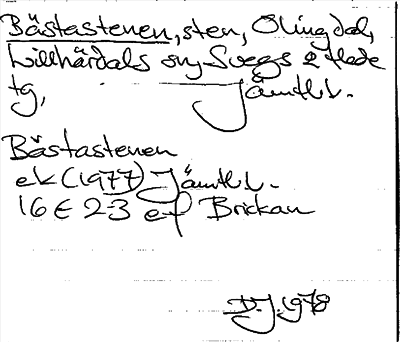 Bästastenen, sten, Olingdal,
Lillhärdals sn, Svegs o Hede
tg, Jämtl.l.
Bästastenen
ek (1977) Jämtl.l.
16 E 2-3 e-f Brickan
D.J. 1978